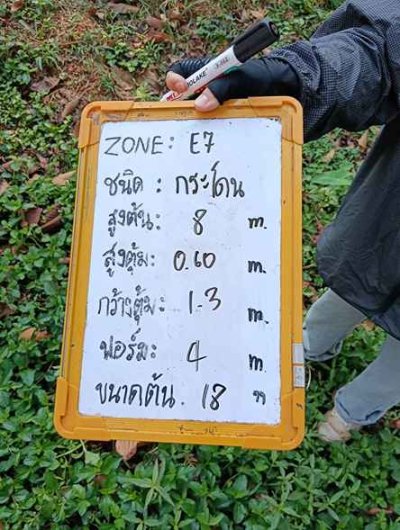 ZONE: E7
ชนิด : กระโดน
สูงต้น: 8 m.
สูงตุ้ม: 0.60 m.
กว้างตุ้ม: 1.3 m.
ฟอร์ม: 4 m
ขนาดต้น. 18 "